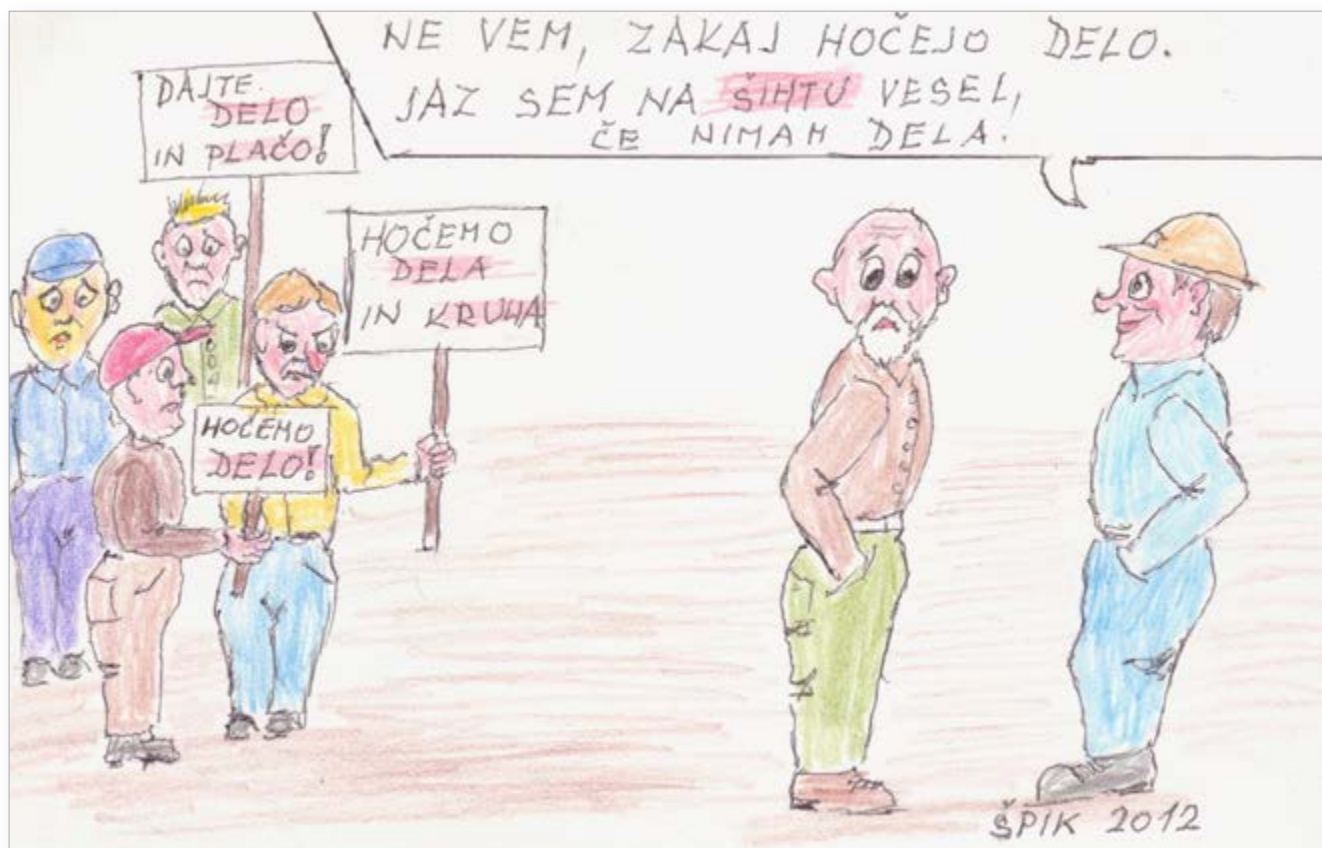 NE VEM, ZAKAJ HOČEJO DELO.
JAZ SEM NA ŠIHTU VESEL,
ČE NIMAM DELA.
DAJTE
DELO
IN PLAČO!
HOČEMO
DELA
IN KRUHA
HOČEMO
DELO!
ŠPIK 2012